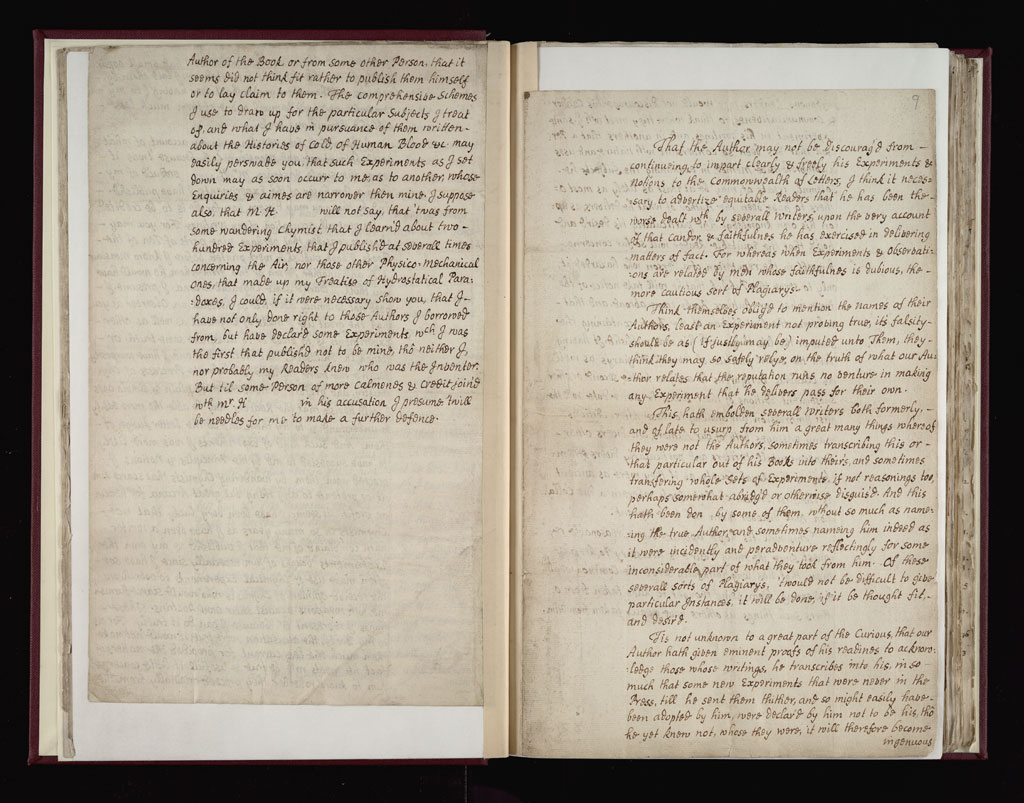 Author of the Book or from some other Person, that it
seems did not think fit rather to publish them himself
or to lay claim to them. The comprehensive Schemes
I use to draw up for the particular Subjects I treat
of, and what I have in pursuance of them written-
about the Histories of Cold, of Human Blood &c. may
easily perswade you, that such Experiments as I set
down may as soon occurr to me, as to another, whose
Enquiries & aimes are narrower then mine. I suppose
also, that M. H. will not say, that 'twas from
some wandering Chymist that I learn'd about two-
hundred Experiments, that I publish'd at severall times
concerning the Air, nor those other Physico-Mechanical
ones, that made up my Treatise of Hydrostatical Para-
:doxes, I could, if it were necessary show you, that I-
have not only done right to those Authors I borrowed
from, but have declar'd some Experiments, wch I was
the first that publish'd not to be mine, thô neither I,
nor probably my Readers knew who was the Inventer.
But til some Person of more Calmenes & Credit joind
wth Mr. H in his accusation I presume 'twill
be needles for me to make a further defence.
9
That the Author may not be Discourag'd from -
continueing to impart clearly & freely his Experiments &
Notions to the Commonwealth of Letters, I think it neces-
:sary to advertize equitable Readers that he has been the-
worse dealt wth by severall Writers, upon the very account
of that candor & faithfulnes he has exercised in delivering
matters of fact. For whereas when Experiments & Observati-
:ons are related by men whose faithfulnes is Dubious, the -
more cautious sort of Plagiarys-
Think themselves oblig'd to mention the names of their
Authors, least an Experiment not proving true, its falsity-
should be as (if justly may be) imputed unto Them, they-
think they may so safely relye, on the truth of what our Au-
:thor relates that the reputation runs no venture in making
any Experiment that he delivers pass for their own.
This hath embolden severall Writers both formerly, -
and of late to usurp from him a great many things whereof
they were not the Authors, sometimes transcribing this or -
that particular out of his Books into their's, and sometimes
transfering whole Sets of Experiments, if not reasonings too,
perhaps somewhat abridg'd or otherwise disguis'd. And this
hath been don by some of them, wthout so much as name-
:ing the true Author, and sometimes nameing him indeed as
it were incidently and peradventure reflectingly for some
inconsiderable part of what they took from him. Of these
severall sorts of Plagiarys, 'twould not be difficult to give
particular Instances, it will be done, if it be thought fit,-
and desir'd.
Tis not unknown to a great part of the Curious, that our
Author hath given eminent proofs of his readines to acknow-
:ledge those whose writings, he transcribes into his, in so -
much that some new Experiments that were never in the
Press, till he sent them thither, and so might easily have-
been adopted by him, were declar'd by him not to be his, thô
he yet knew not, whose they were, it will therefore become
ingenuous